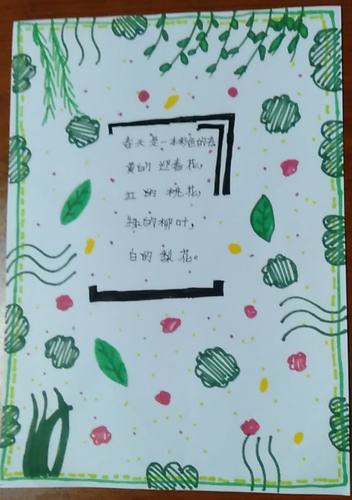 春天是一本彩色的书,
黄的 迎春花,
红 的 桃花,
绿的柳叶,
白的 梨 花。